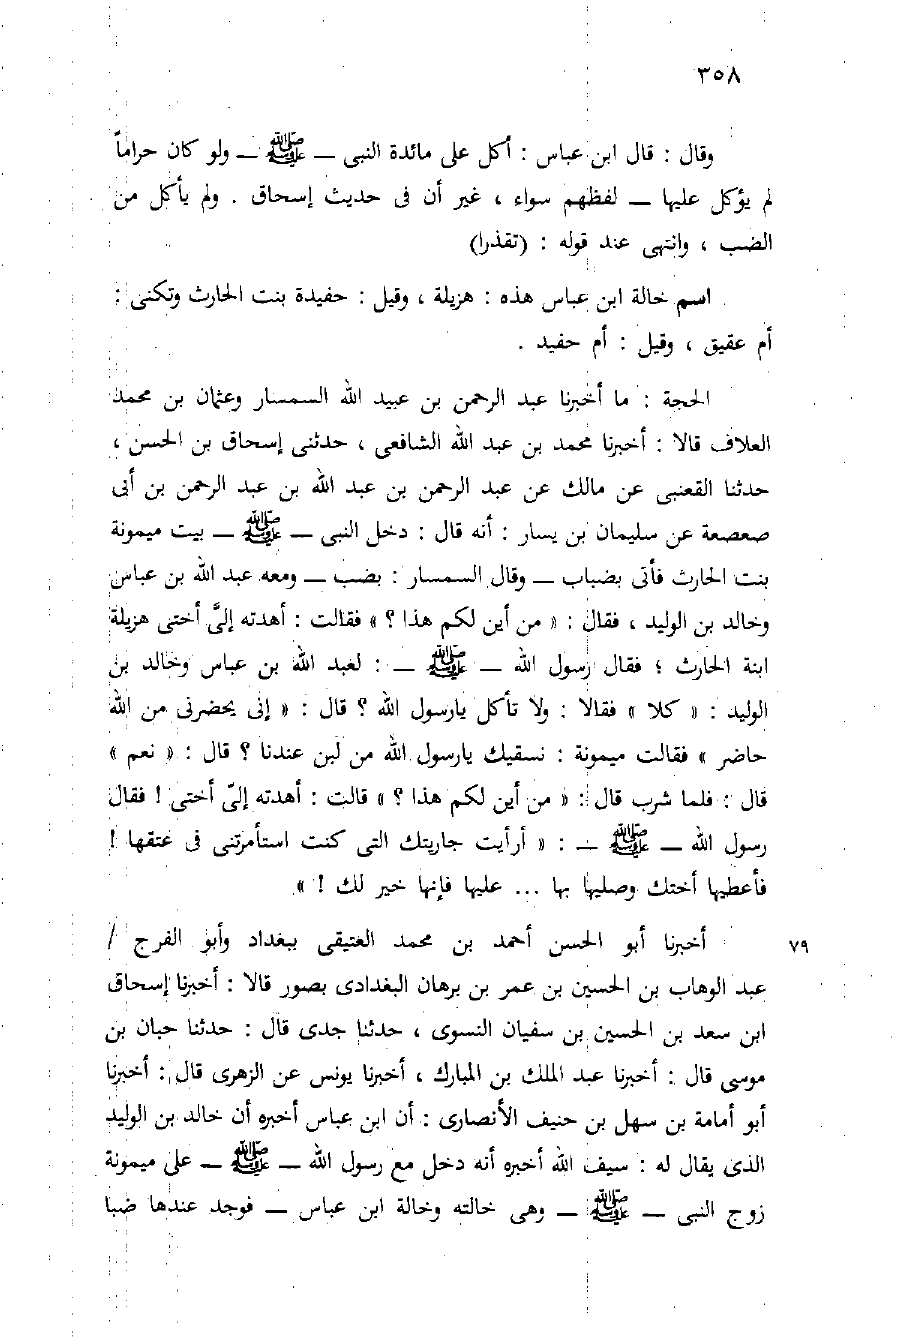 ٣٥٨
وقال : قال ابن عباس : أكل على مائدة النبى — ﷺ — ولو كان حراماً
لم يؤكل عليها — لفظهم سواء ، غير أن فى حديث إسحاق . ولم يأكل من
الضب ، وانتهى عند قوله : (تقذرا)
اسم خالة ابن عباس هذه : هزيلة ، وقيل : حفيدة بنت الحارث وتكنى :
أم عقيق ، وقيل : أم حفيد .
الحجة : ما أخبرنا عبد الرحمن بن عبيد الله السمسار وعثمان بن محمد
العلاف قالا : أخبرنا محمد بن عبد الله الشافعى ، حدثنى إسحاق بن الحسن ،
حدثنا القعنبى عن مالك عن عبد الرحمن بن عبد الله بن عبد الرحمن بن أبى
صعصعة عن سليمان بن يسار : أنه قال : دخل النبى — ﷺ — بيت ميمونة
بنت الحارث فأتى بضباب — وقال السمسار : بضب — ومعه عبد الله بن عباس
وخالد بن الوليد ، فقال : « من أين لكم هذا ؟ » فقالت : أهدته إلىَّ أختى هزيلة
ابنة الحارث ؛ فقال رسول الله — ﷺ — : لعبد الله بن عباس وخالد بن
الوليد : « كلا » فقالا : ولا تأكل يارسول الله ؟ قال : « إنى يحضرنى من الله
حاضر » فقالت ميمونة : نسقيك يارسول الله من لبن عندنا ؟ قال : « نعم »
قال : فلما شرب قال : « من أين لكم هذا ؟ » قالت : أهدته إلىّ أختى ! فقال
رسول الله — ﷺ — : « أرأيت جاريتك التى كنت استأمرتنى فى عتقها !
فأعطيها أختك وصليها بها ... عليها فإنها خير لك ! »
أخبرنا أبو الحسن أحمد بن محمد العتيقى ببغداد وأبو الفرج / ٧٩
عبد الوهاب بن الحسين بن عمر بن برهان البغدادى بصور قالا : أخبرنا إسحاق
ابن سعد بن الحسين بن سفيان النسوى ، حدثنا جدى قال : حدثنا حبان بن
موسى قال : أخبرنا عبد الملك بن المبارك ، أخبرنا يونس عن الزهرى قال : أخبرنا
أبو أمامة بن سهل بن حنيف الأنصارى : أن ابن عباس أخبره أن خالد بن الوليد
الذى يقال له : سيف الله أخبره أنه دخل مع رسول الله — ﷺ — على ميمونة
زوج النبى — ﷺ — وهى خالته وخالة ابن عباس — فوجد عندها ضبا